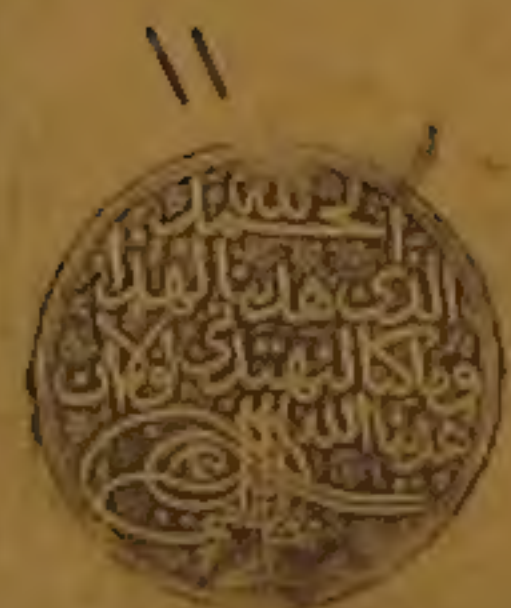 ١١
الحمد لله
الذي هدينا لهذا
وما كنا لنهتدي لولا ان
هدينا الله